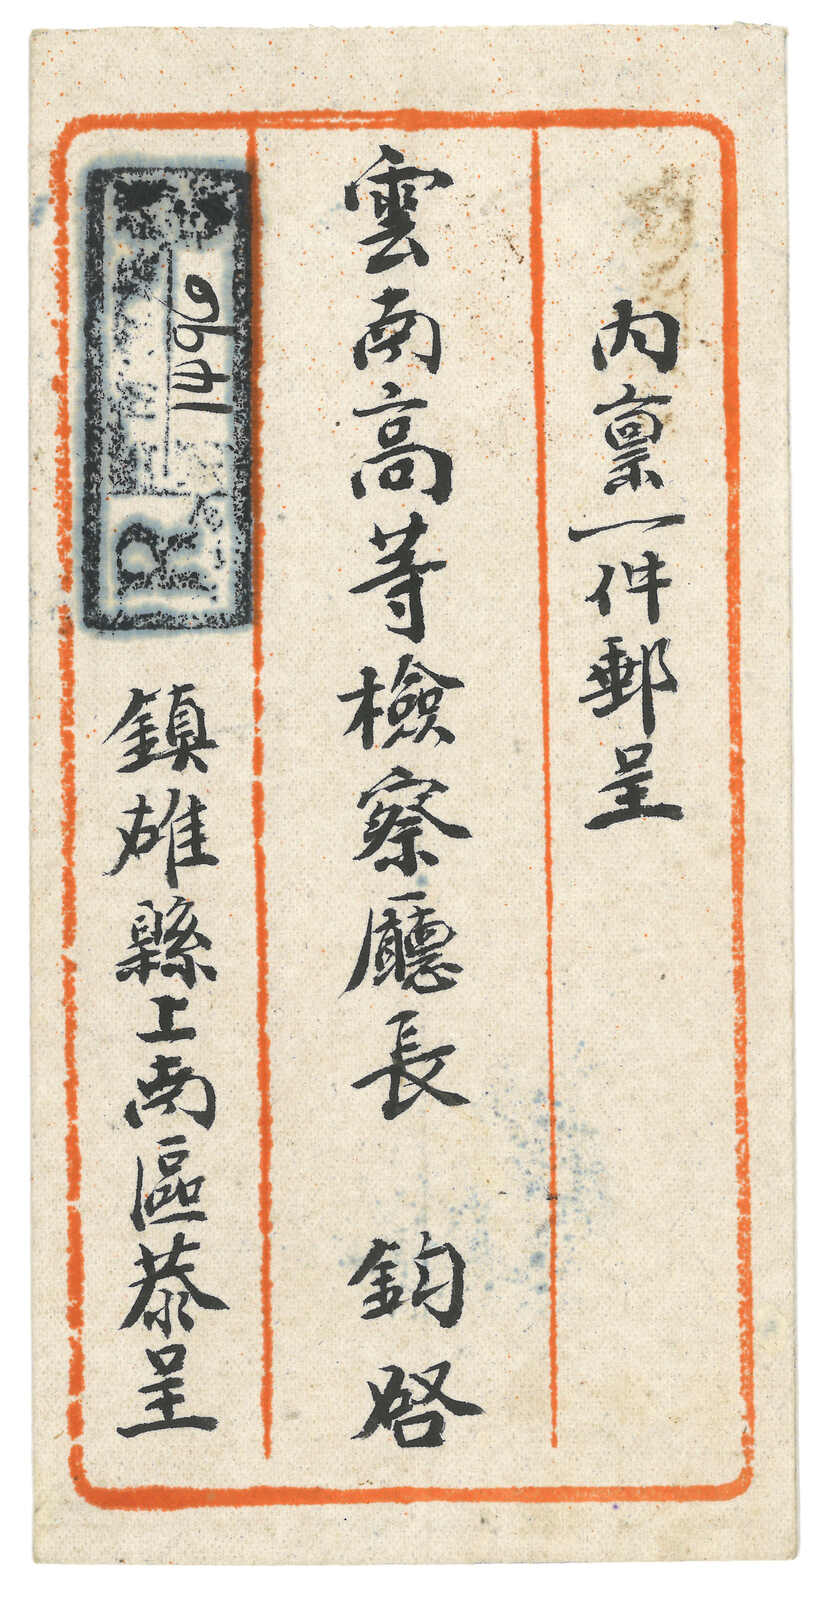 內禀一件郵呈
雲南高等檢察廳長 鈞啓
鎮雄縣上南區恭呈
R
1496